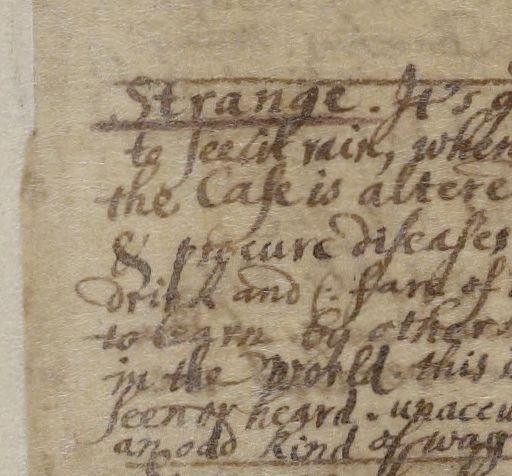 Strange. It's g
to see it rain, when
the Case is altere
& to cure diseases
drink and fare of
to learn by others
in the World. this
seen or heard. unaccu
an odd kind of way